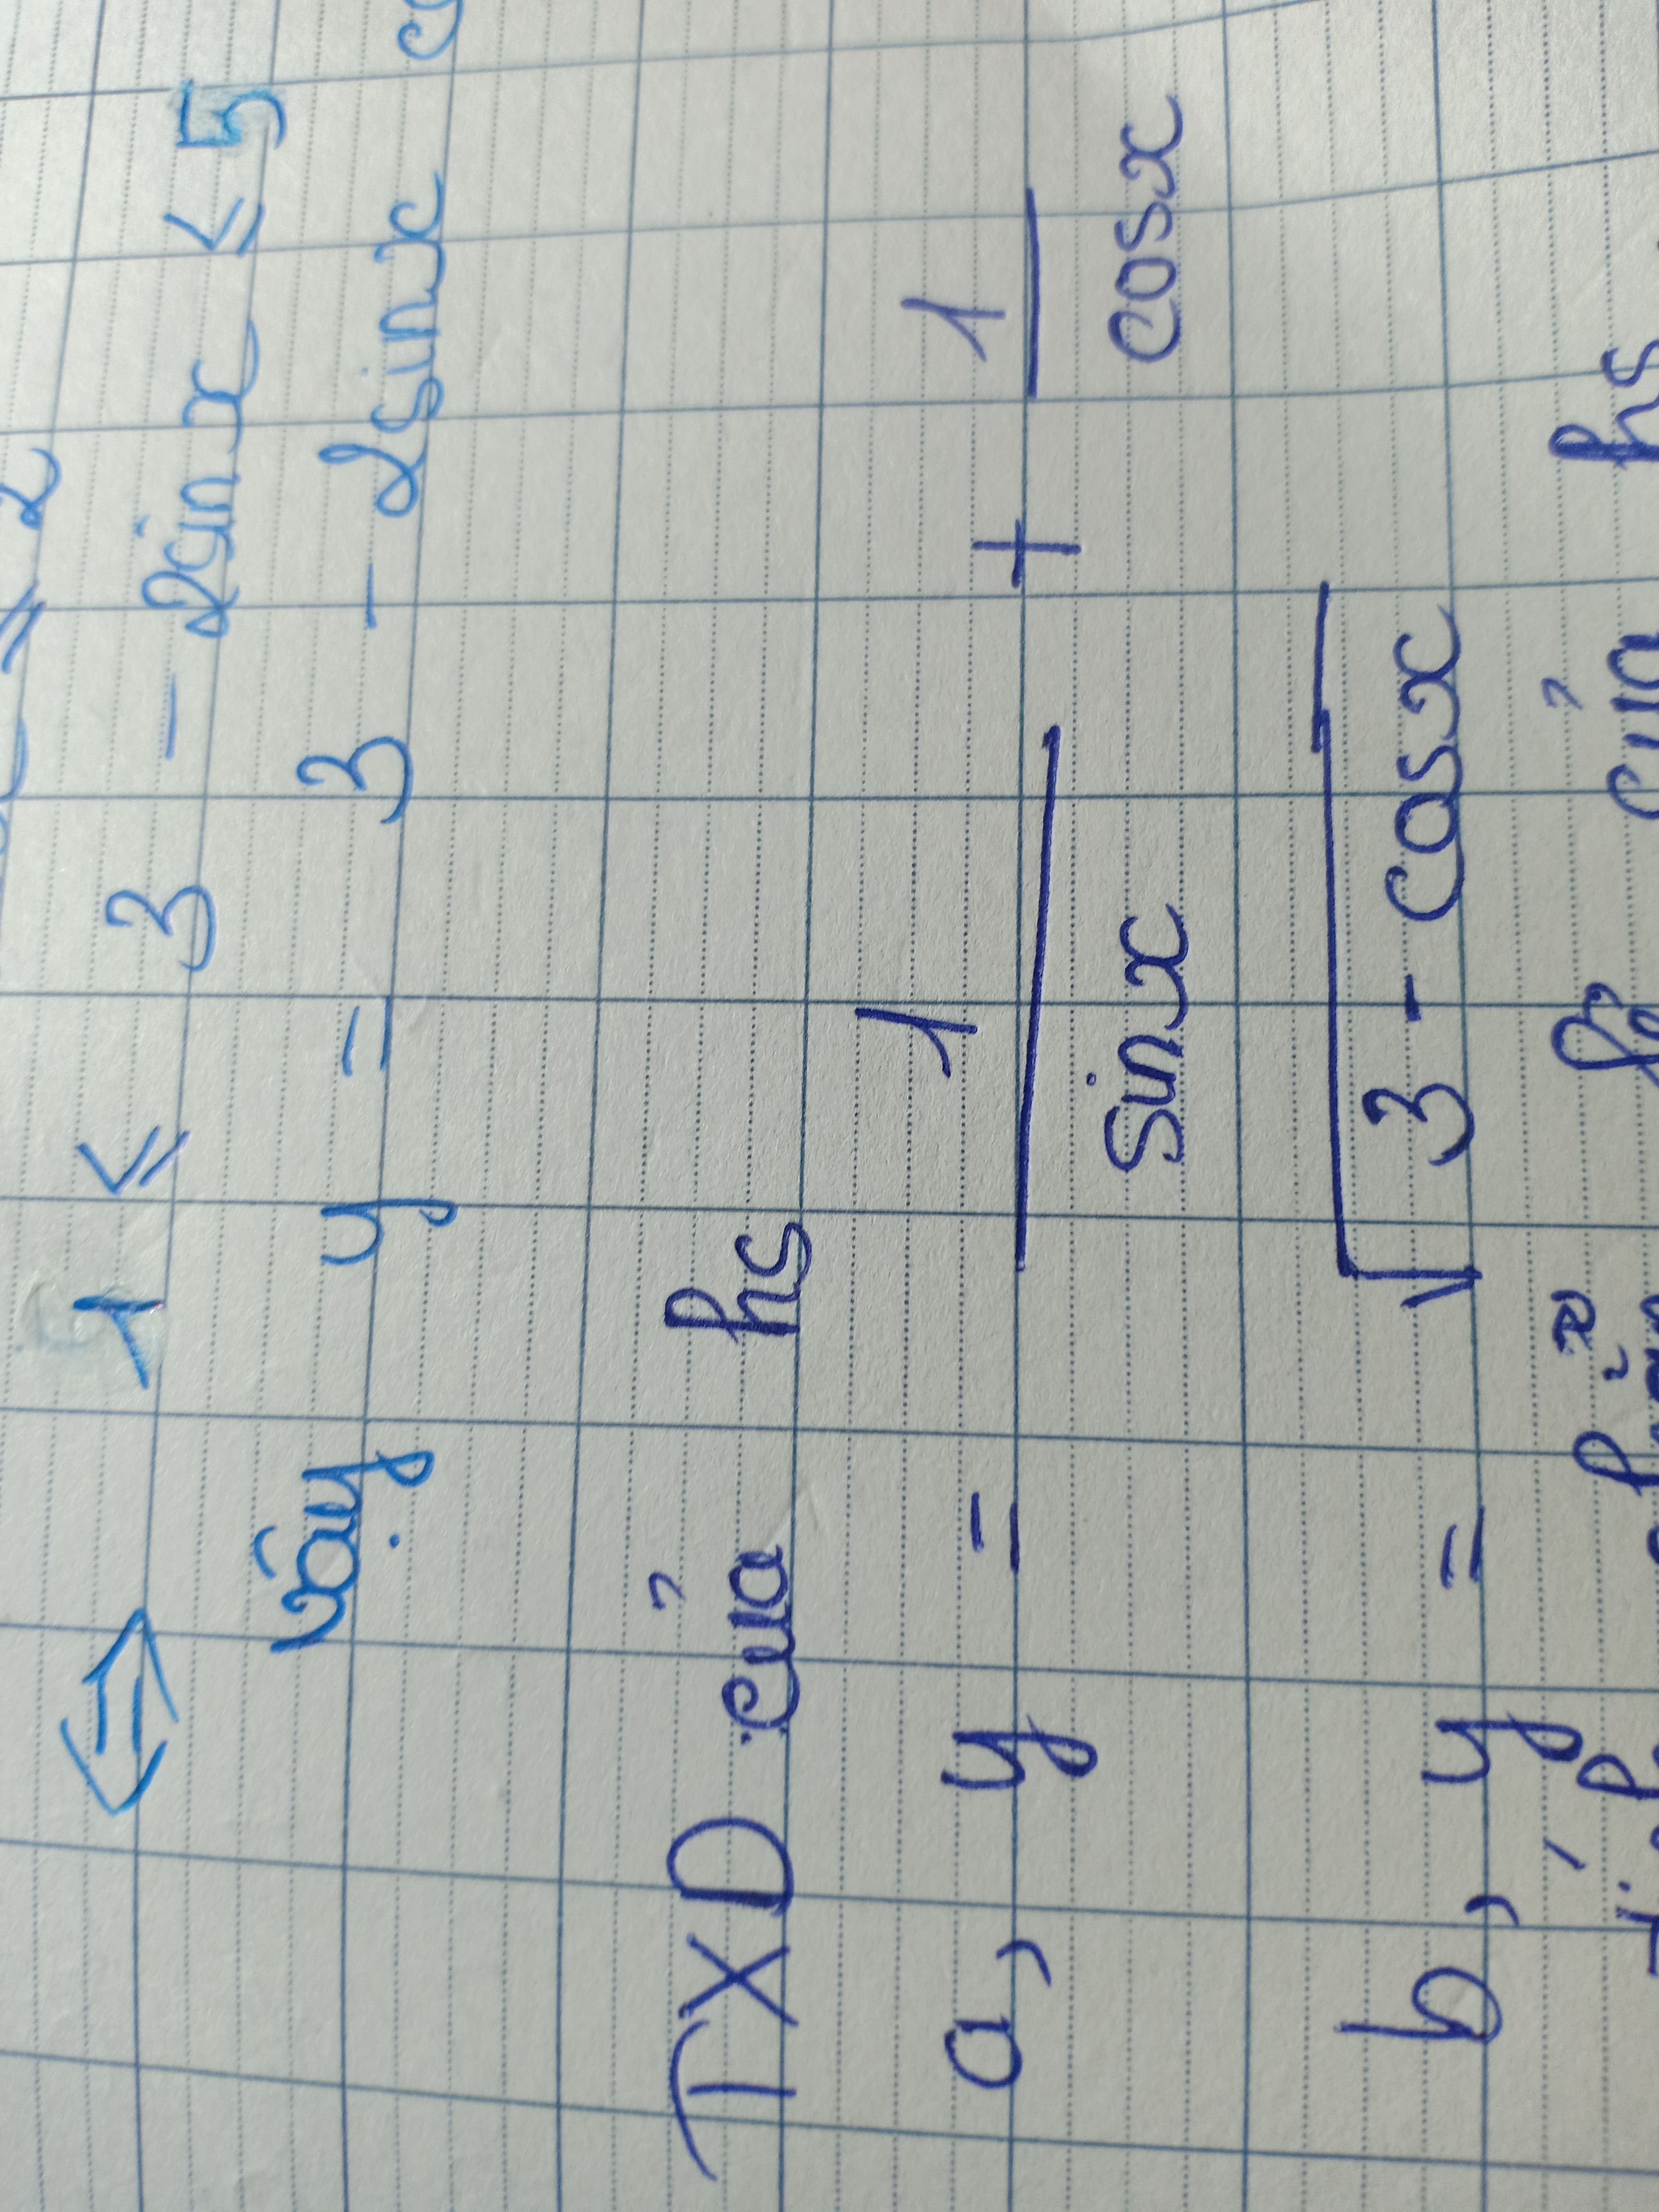 ≤ 2
⇔ 1 ≤ 3 - 2sinx ≤ 5
Vậy y = 3 - 2sinx
TXD của hs
a, y = 1/sinx + 1/cosx
b, y = √(3 - cosx)
của hs